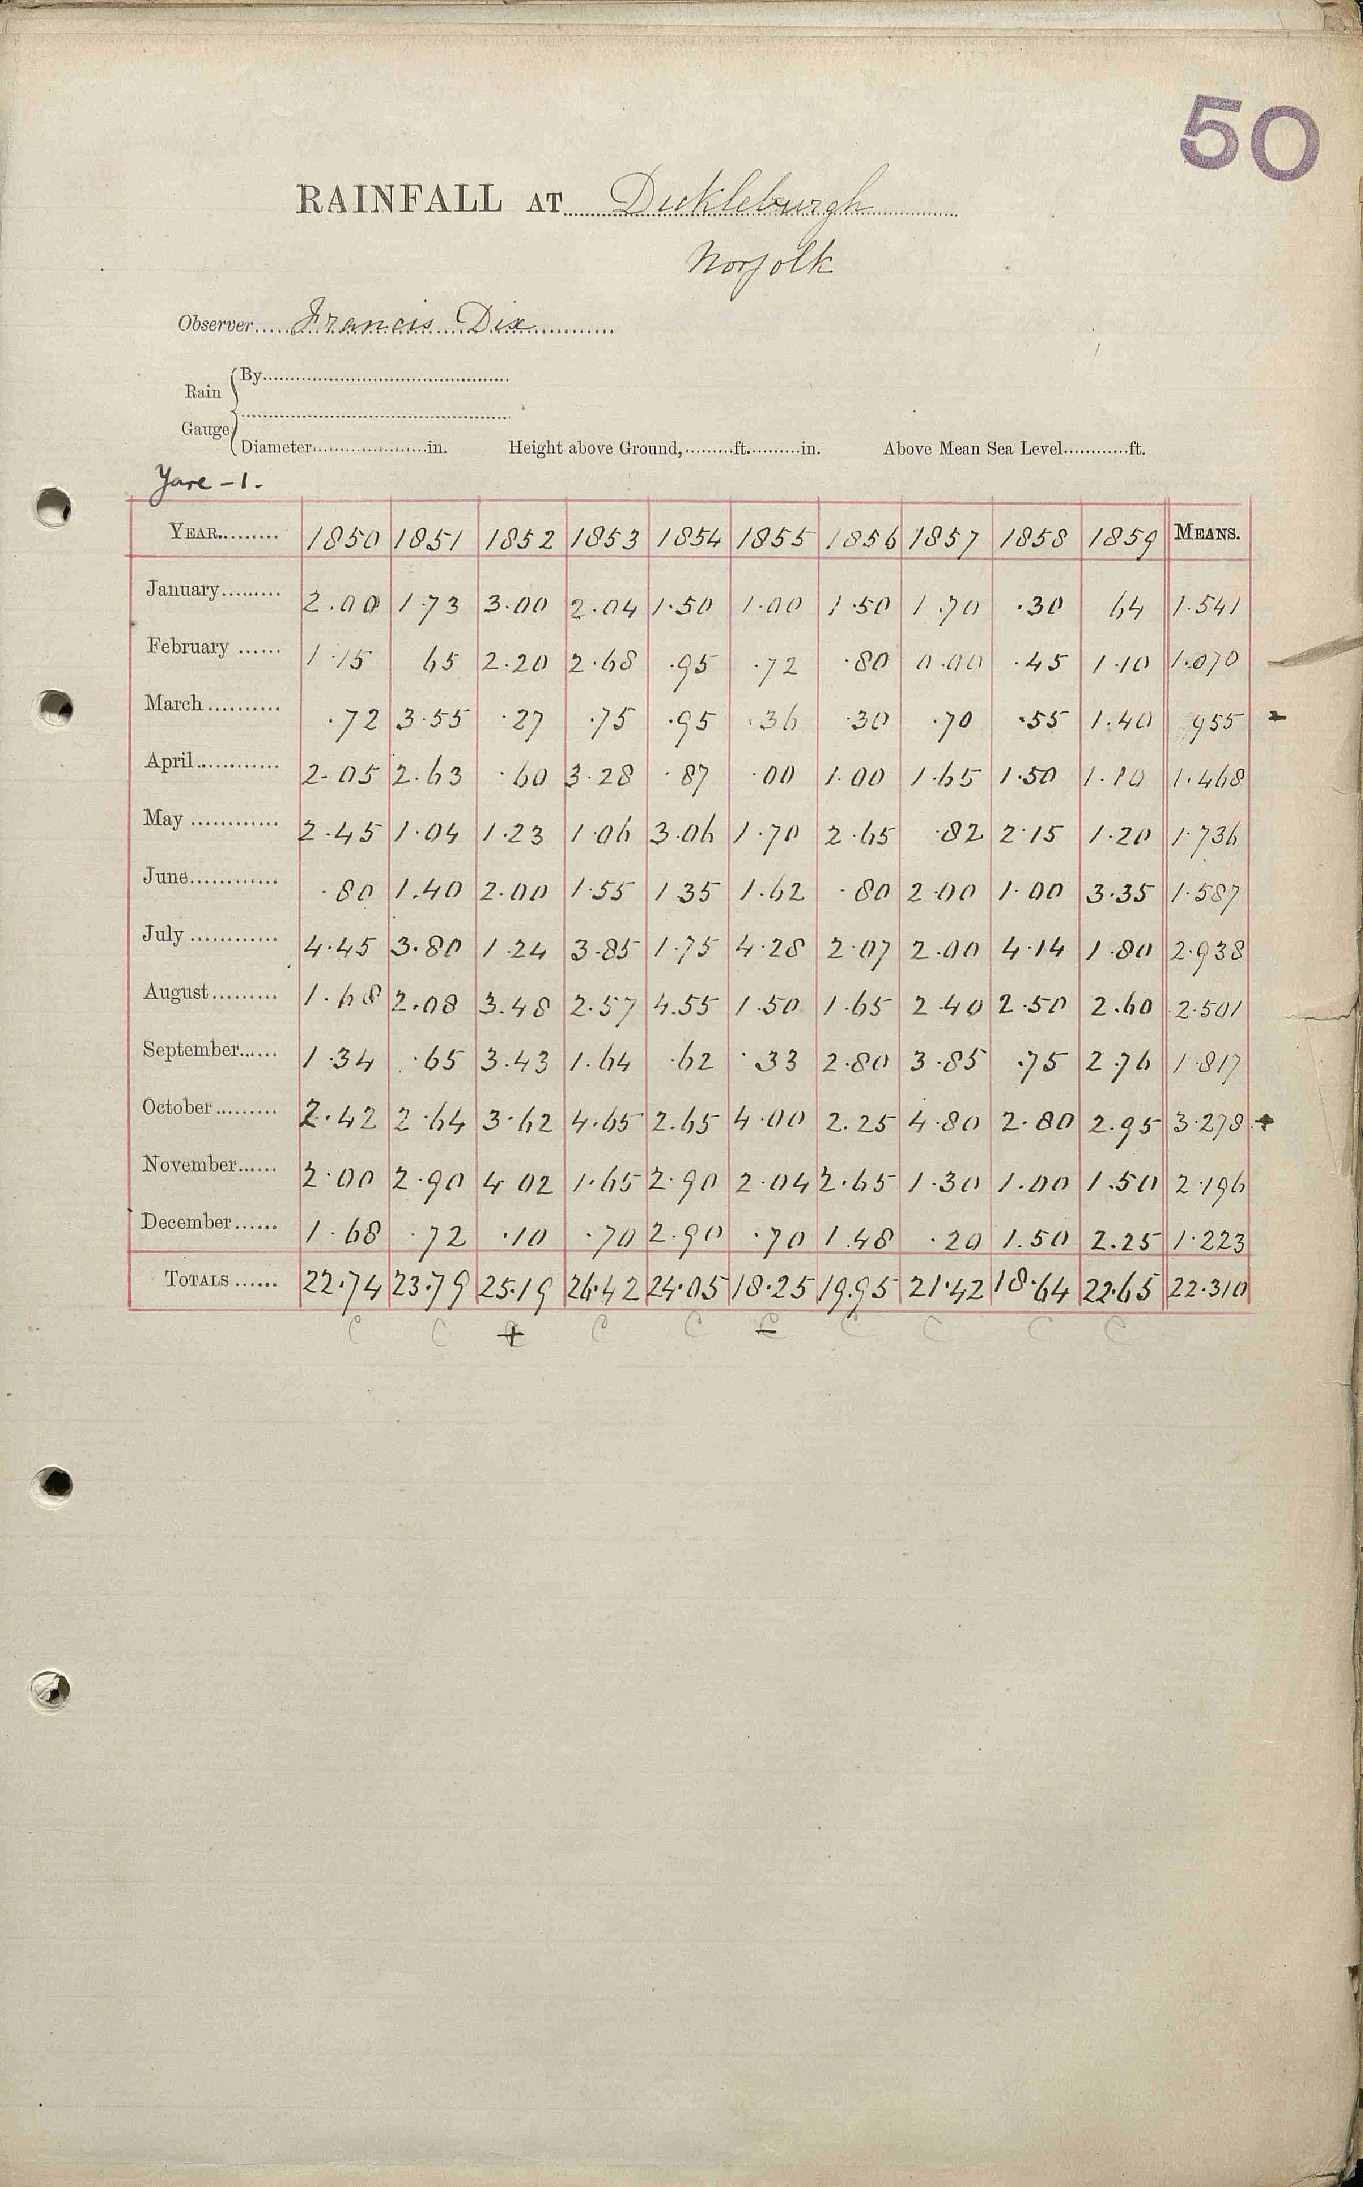 50
RAINFALL AT Dickleburgh
Norfolk
Observer Francis Dix
Rain Gauge
By
Diameter in. Height above Ground, ft. in. Above Mean Sea Level ft.
Yare - 1.
YEAR 1850 1851 1852 1853 1854 1855 1856 1857 1858 1859 MEANS.
January 2.00 1.73 3.00 2.04 1.50 1.00 1.50 1.70 .30 64 1.541
February 1.15 65 2.20 2.68 .95 .72 .80 0.00 .45 1.10 1.070
March .72 3.55 .27 .75 .95 .36 .30 .70 .55 1.40 955 -
April 2.05 2.63 .60 3.28 .87 .00 1.00 1.65 1.50 1.10 1.468
May 2.45 1.04 1.23 1.06 3.06 1.70 2.65 .82 2.15 1.20 1.736
June .80 1.40 2.00 1.55 1.35 1.62 .80 2.00 1.00 3.35 1.587
July 4.45 3.80 1.24 3.85 1.75 4.28 2.07 2.00 4.14 1.80 2.938
August 1.68 2.08 3.48 2.57 4.55 1.50 1.65 2.40 2.50 2.60 2.501
September 1.34 .65 3.43 1.64 .62 .33 2.80 3.85 .75 2.76 1.817
October 2.42 2.64 3.62 4.65 2.65 4.00 2.25 4.80 2.80 2.95 3.278 +
November 2.00 2.90 4.02 1.65 2.90 2.04 2.65 1.30 1.00 1.50 2.196
December 1.68 .72 .10 .70 2.90 .70 1.48 .20 1.50 2.25 1.223
TOTALS 22.74 23.79 25.19 26.42 24.05 18.25 19.95 21.42 18.64 22.65 22.310
C C C + C C C - C C C C